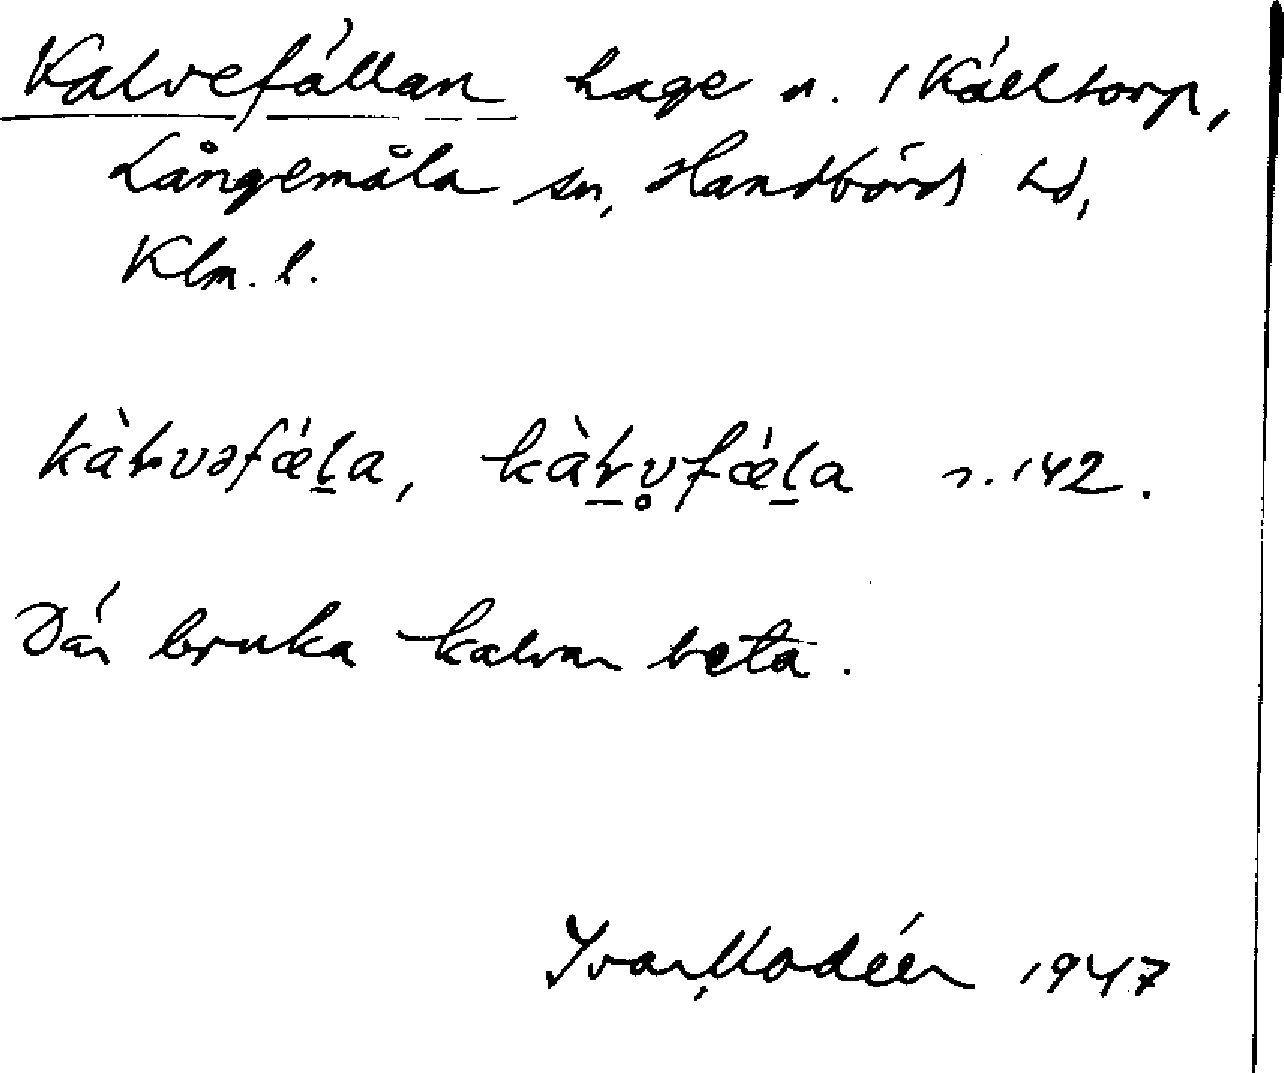 Kalvefällan hage n. i Källtorp,
Långemåla sn, Handbörds hd,
Klm. l.
kàƚvəfǽḻa, kàƚ̠v̥fǽḻa s. 142.
Där bruka kalvar beta.
Ivar Modéer 1947